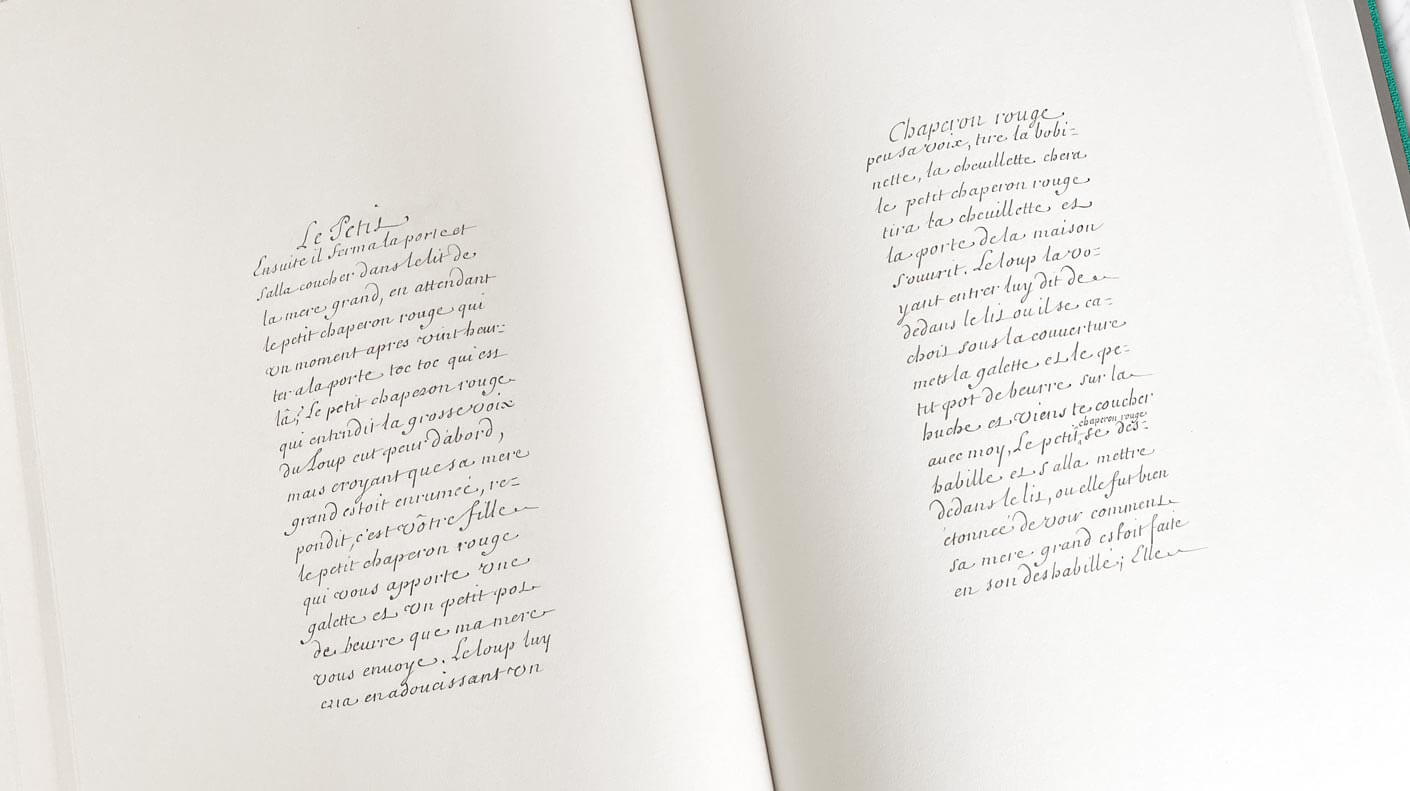 Le Petit
Ensuite il ferma la porte et
salla coucher dans le lit de
la mere grand, en attendant
le petit chaperon rouge qui
un moment apres vint heur=
ter a la porte toc toc qui est
là? Le petit chaperon rouge
qui entendit la grosse voix
du Loup eut peur d'abord,
mais croyant que sa mere
grand estoit enrumée, re=
pondit, c'est vôtre fille
le petit chaperon rouge
qui vous apporte une
galette et un petit pot
de beurre que ma mere
vous enuoye. Le loup luy
cria en adoucissant un
Chaperon rouge.
peu sa voix, tire la bobi=
nette, la cheuillette chera
le petit chaperon rouge
tira la cheuillette et
la porte de la maison
s'ouurit. Le loup la vo=
yant entrer luy dit de
dedans le lit ou il se ca=
choit sous la couuerture
mets la galette et le pe=
tit pot de beurre sur la
huche et viens te coucher
auec moy, Le petit chaperon rouge se des=
habille et s alla mettre
dedans le lit, ou elle fut bien
étonneé de voir comment
sa mere grand estoit faite
en son deshabillé; Elle